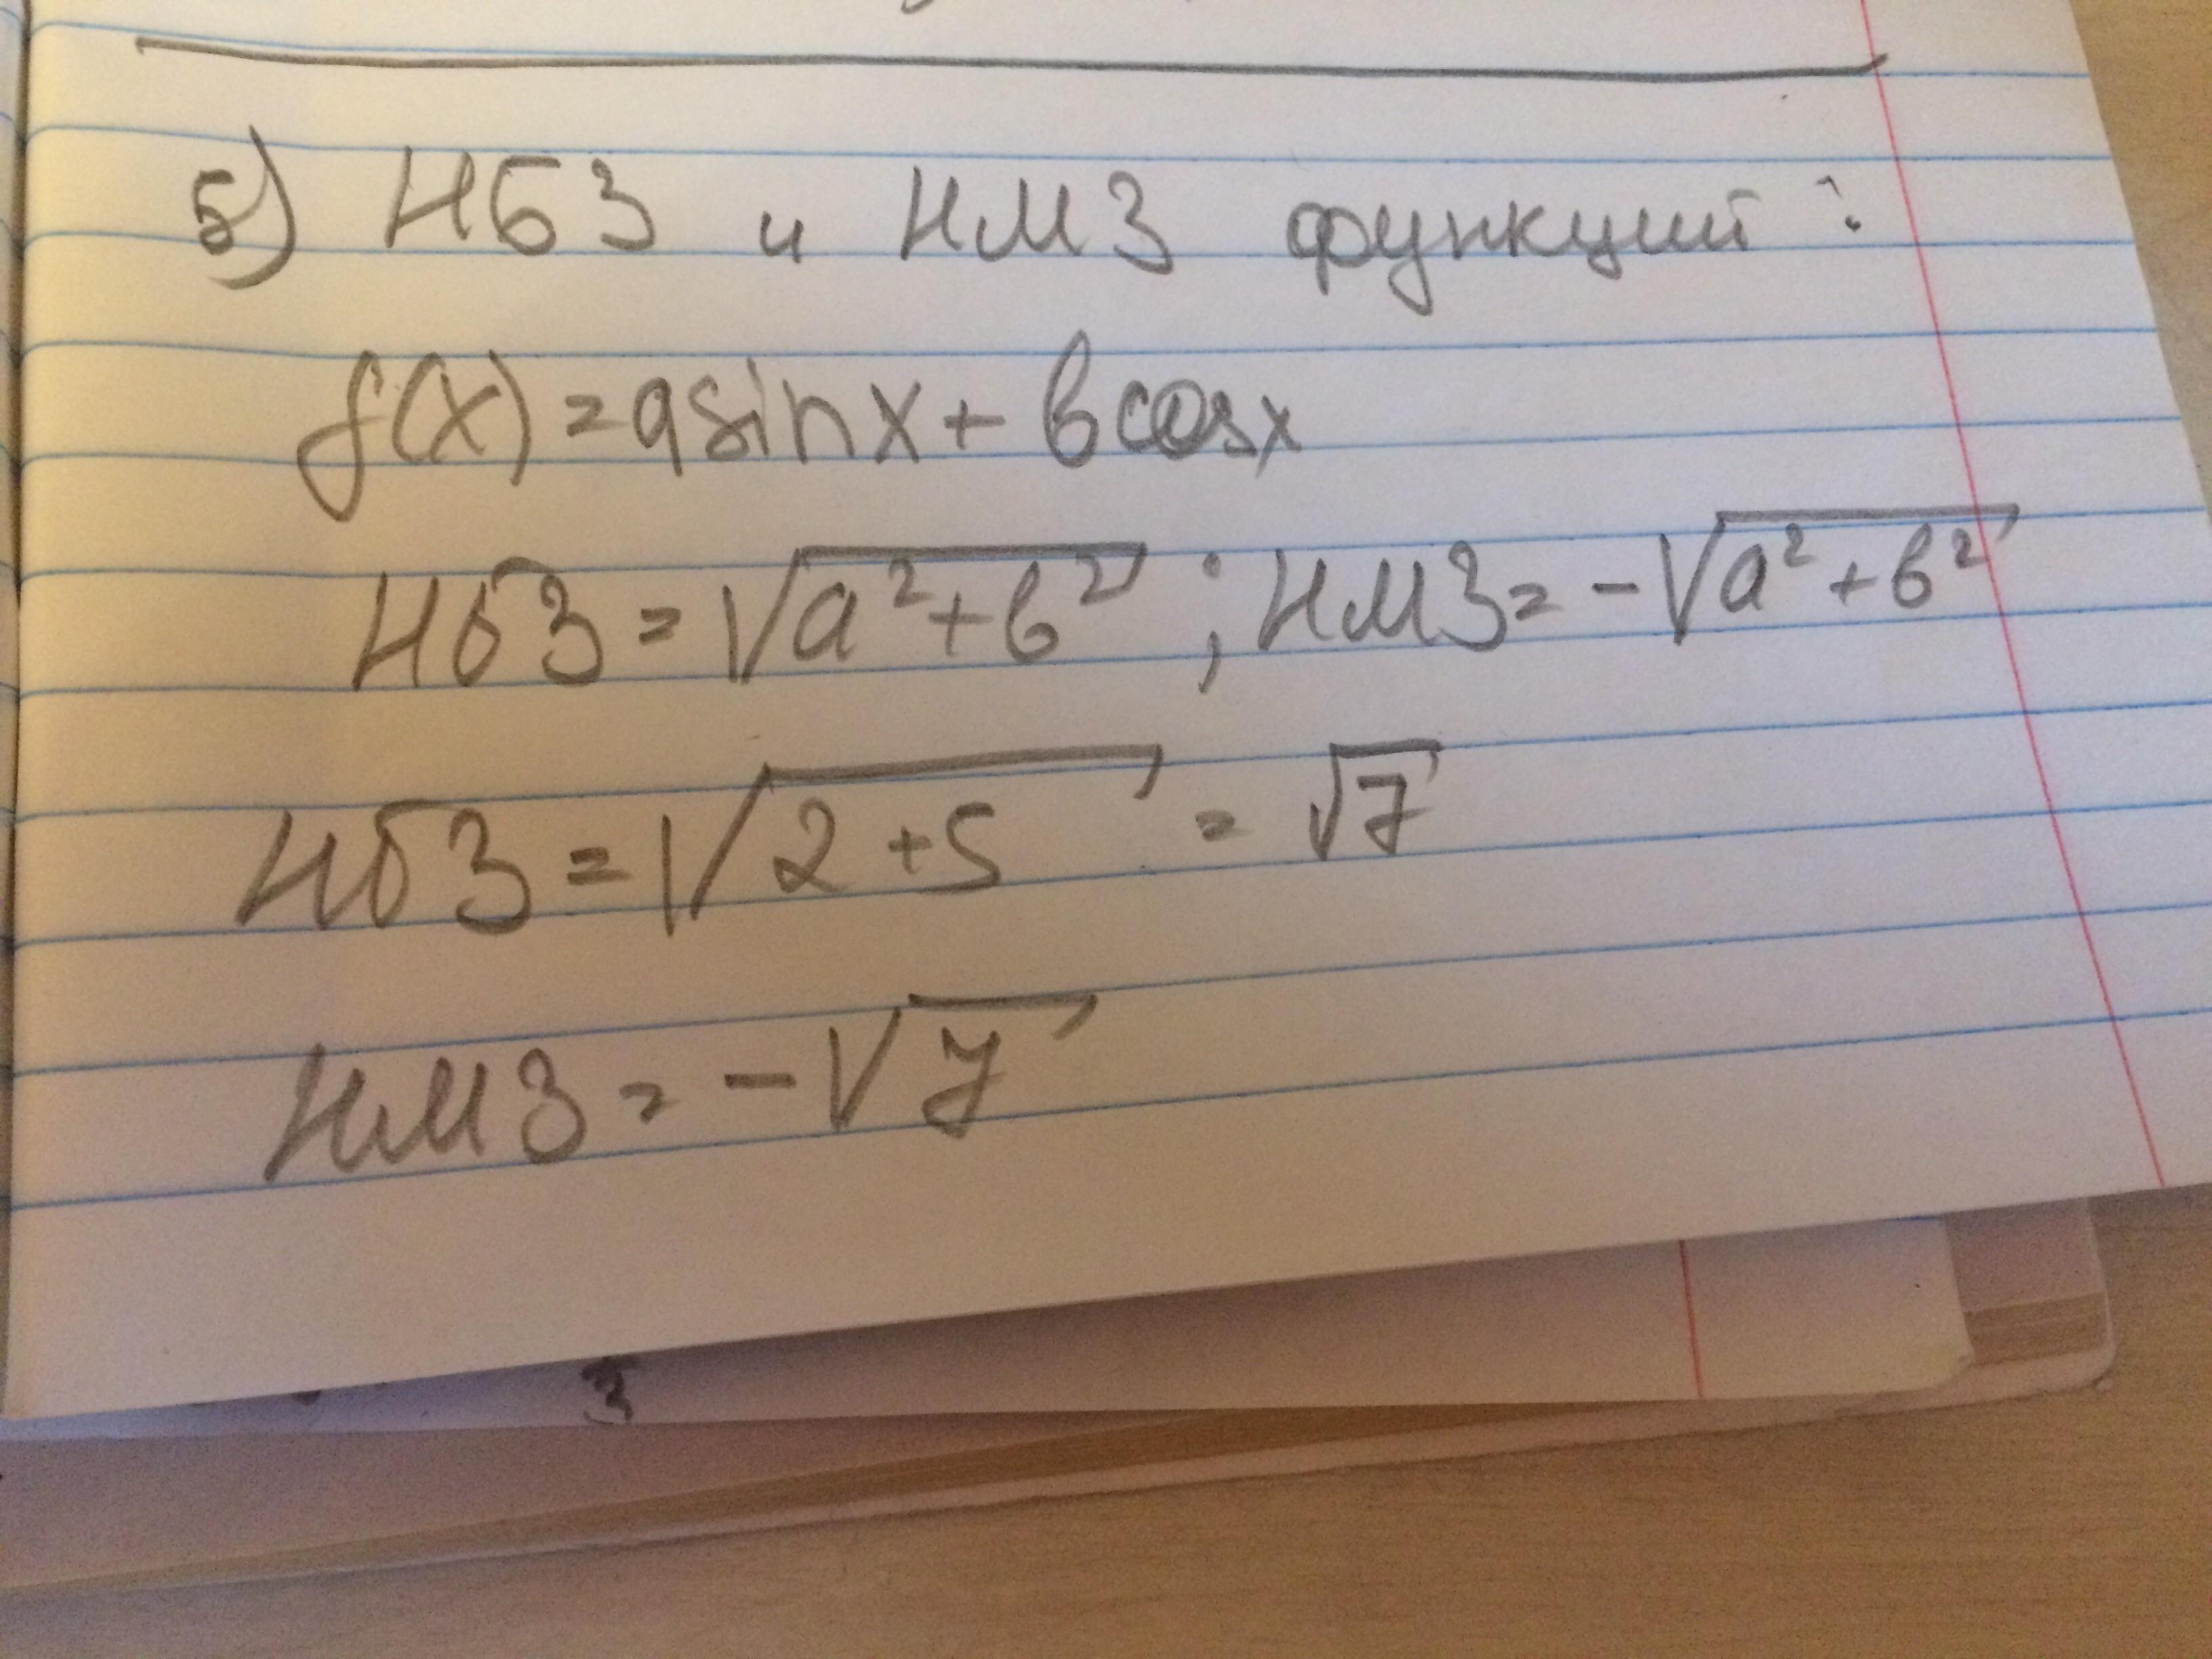 5) НБЗ и НМЗ функций:
f(x)=asinx+bcosx
НбЗ = √a²+b² ; НМЗ= -√a²+b²
НбЗ = √2+5 = √7
НМЗ = -√7
3